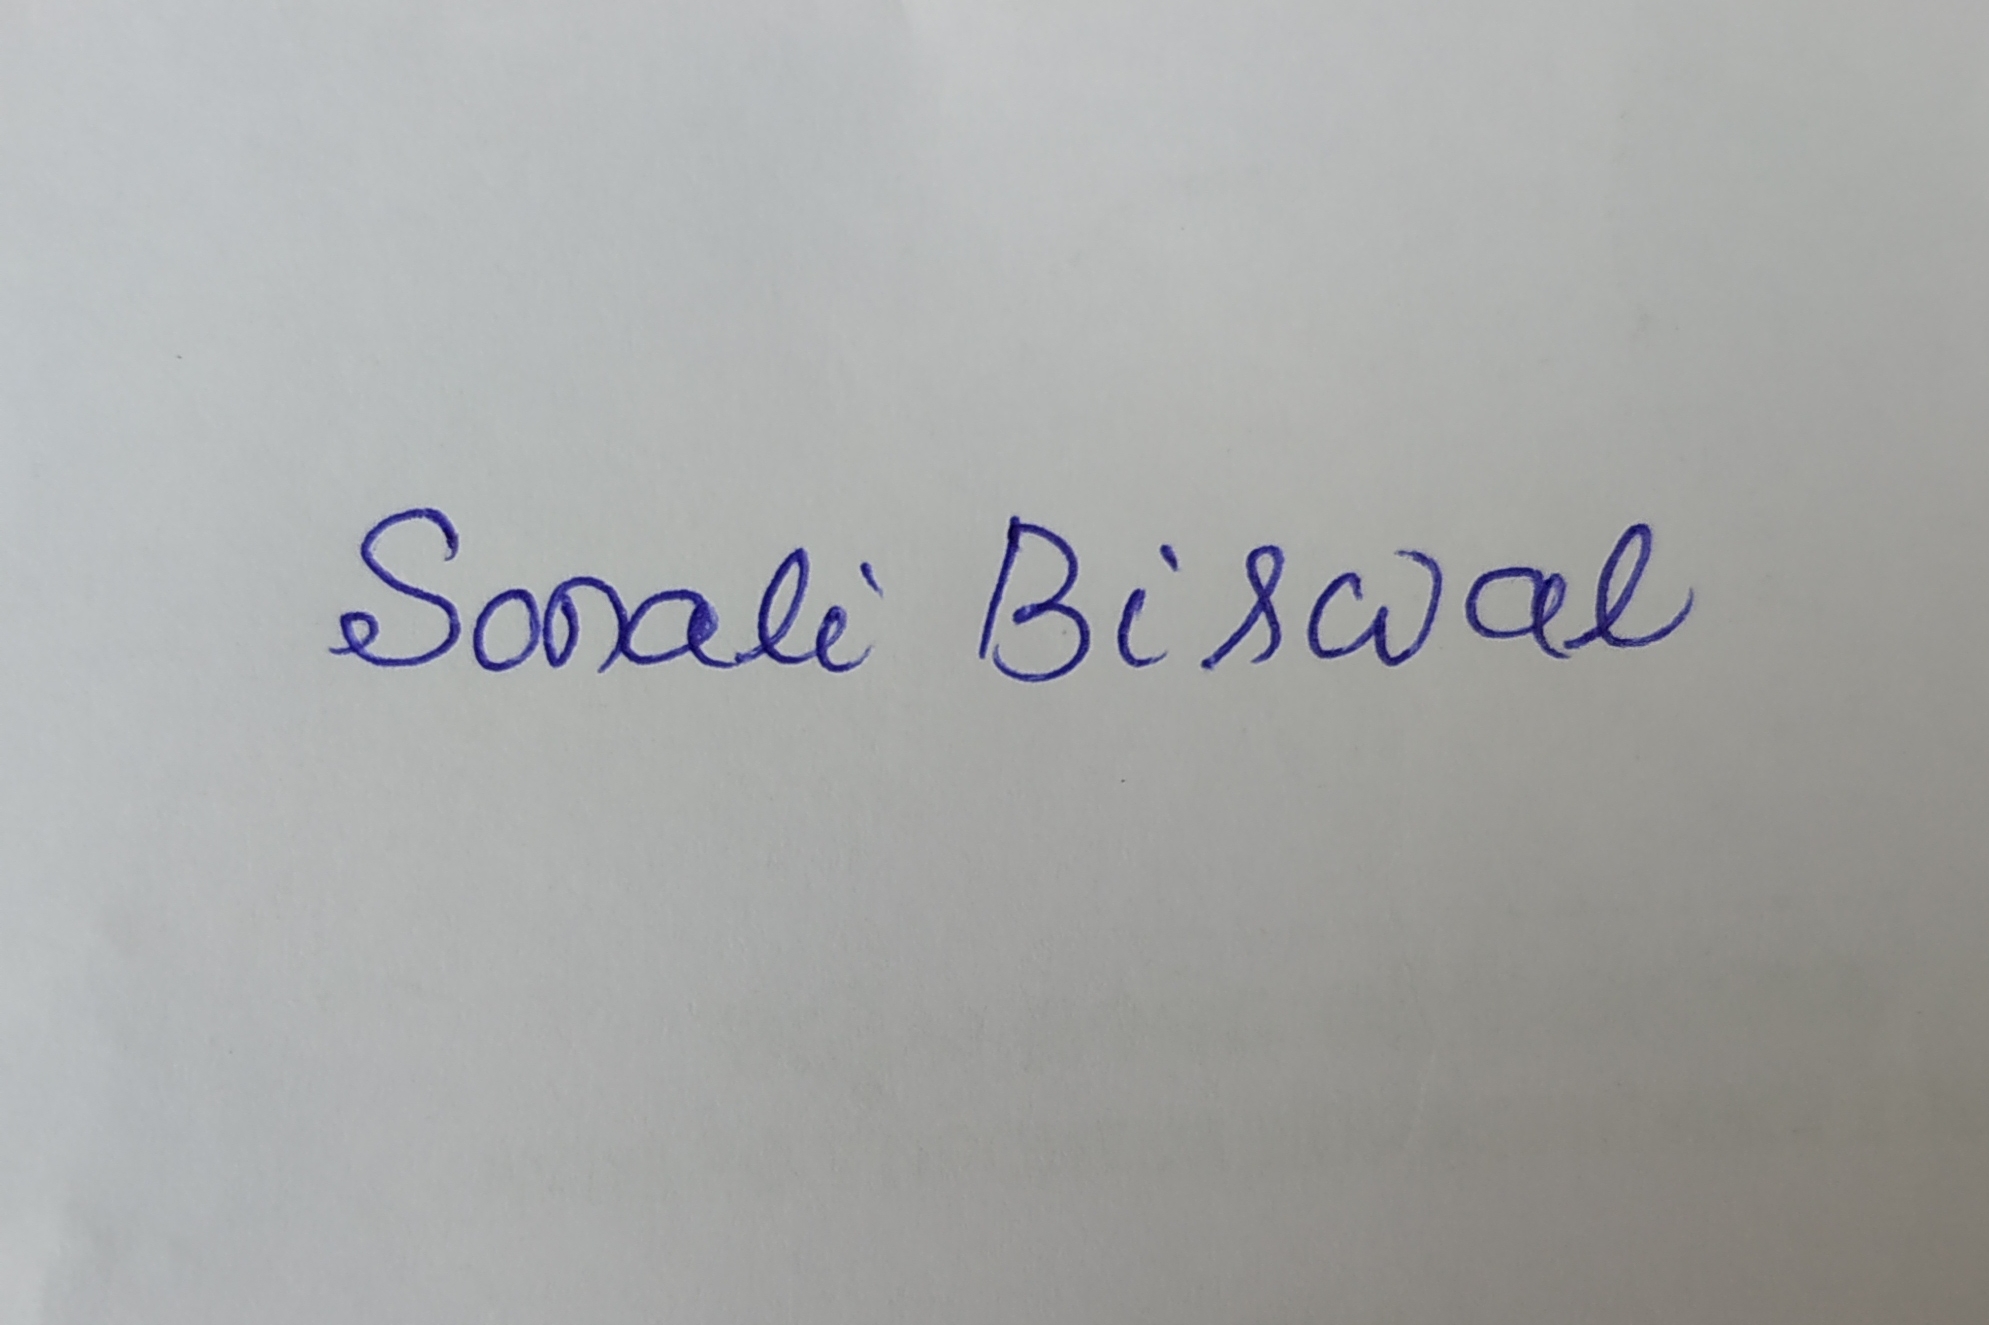 Sonali Biswal